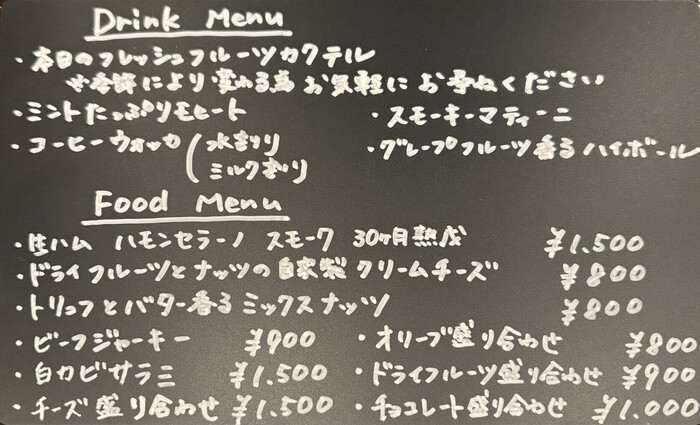 Drink Menu
・本日のフレッシュフルーツカクテル
※季節により変わる為お気軽にお尋ねください
・ミントたっぷりモヒート ・スモーキーマティーニ
・コーヒーウォッカ（水割り ・グレープフルーツ香るハイボール
ミルク割り
Food Menu
・生ハム ハモンセラーノ スモーク 30ヶ月熟成 ¥1.500
・ドライフルーツとナッツの自家製クリームチーズ ¥800
・トリュフとバター香るミックスナッツ ¥800
・ビーフジャーキー ¥900 ・オリーブ盛り合わせ ¥800
・白カビサラミ ¥1.500 ・ドライフルーツ盛り合わせ ¥900
・チーズ盛り合わせ ¥1.500 ・チョコレート盛り合わせ ¥1.000